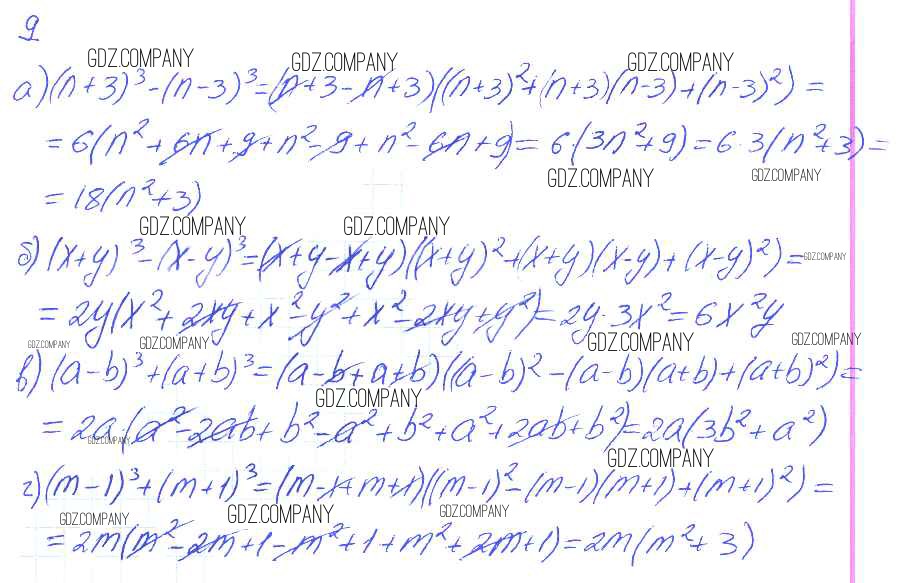 9
GDZ.COMPANY GDZ.COMPANY GDZ.COMPANY
а) (n+3)³-(n-3)³=(n+3-n+3)((n+3)²+(n+3)(n-3)+(n-3)²)=
=6(n²+6n+9+n²-9+n²-6n+9)=6·(3n²+9)=6·3(n²+3)=
GDZ.COMPANY GDZ.COMPANY
=18(n²+3)
GDZ.COMPANY GDZ.COMPANY
б) (x+y)³-(x-y)³=(x+y-x+y)((x+y)²+(x+y)(x-y)+(x-y)²)=
GDZ.COMPANY
=2y(x²+2xy+x²-y²+x²-2xy+y²)=2y·3x²=6x²y
GDZ.COMPANY GDZ.COMPANY GDZ.COMPANY GDZ.COMPANY
в) (a-b)³+(a+b)³=(a-b+a+b)((a-b)²-(a-b)(a+b)+(a+b)²)=
GDZ.COMPANY
=2a·(a²-2ab+b²-a²+b²+a²+2ab+b²)=2a(3b²+a²)
GDZ.COMPANY GDZ.COMPANY
г) (m-1)³+(m+1)³=(m-1+m+1)((m-1)²-(m-1)(m+1)+(m+1)²)=
GDZ.COMPANY GDZ.COMPANY GDZ.COMPANY
=2m(m²-2m+1-m²+1+m²+2m+1)=2m(m²+3)